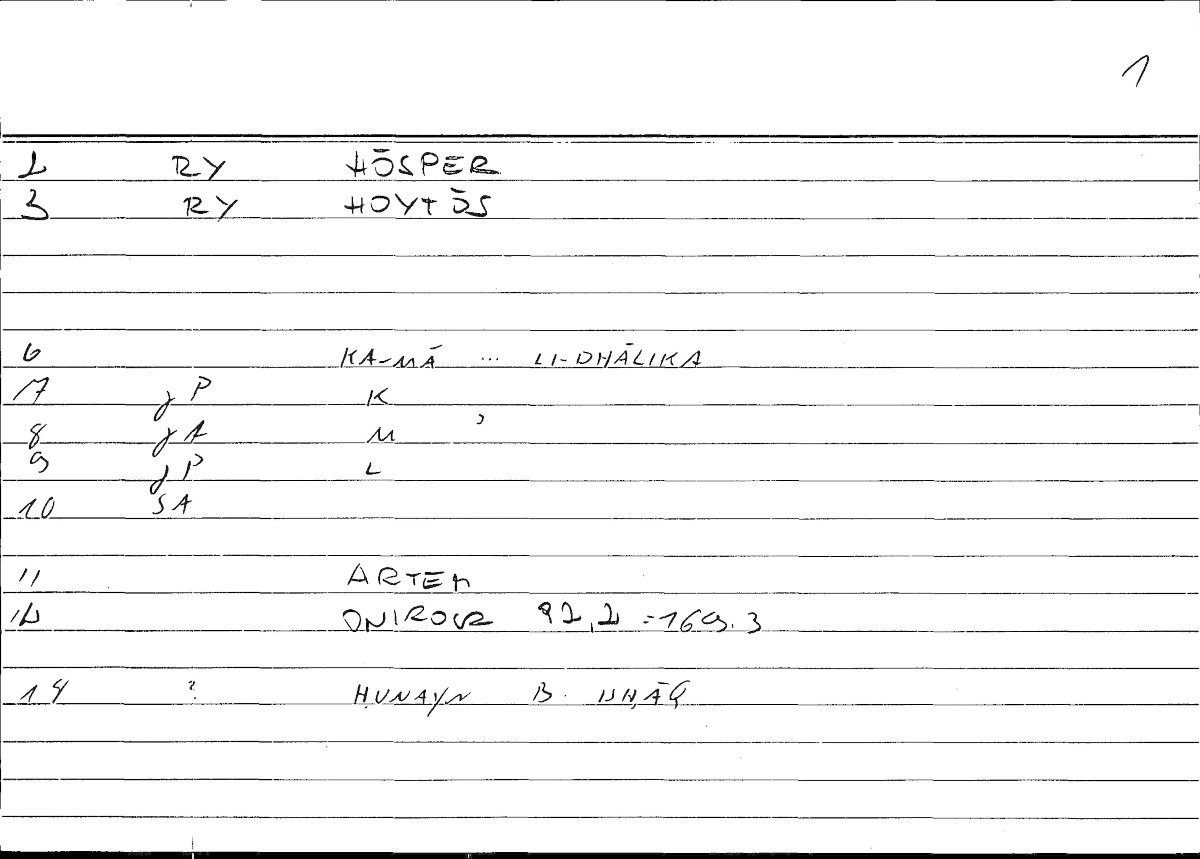 1
2 RY HŌSPER
3 RY HOYTŌS
6 KA-MĀ ... LI-DHĀLIKA
7 gP K
8 gA M ,
9 gP L
10 SA
11 ARTEM
12 ONIROCR 92,2 = 169.3
14 ? ḤUNAYN B. ISḤĀQ